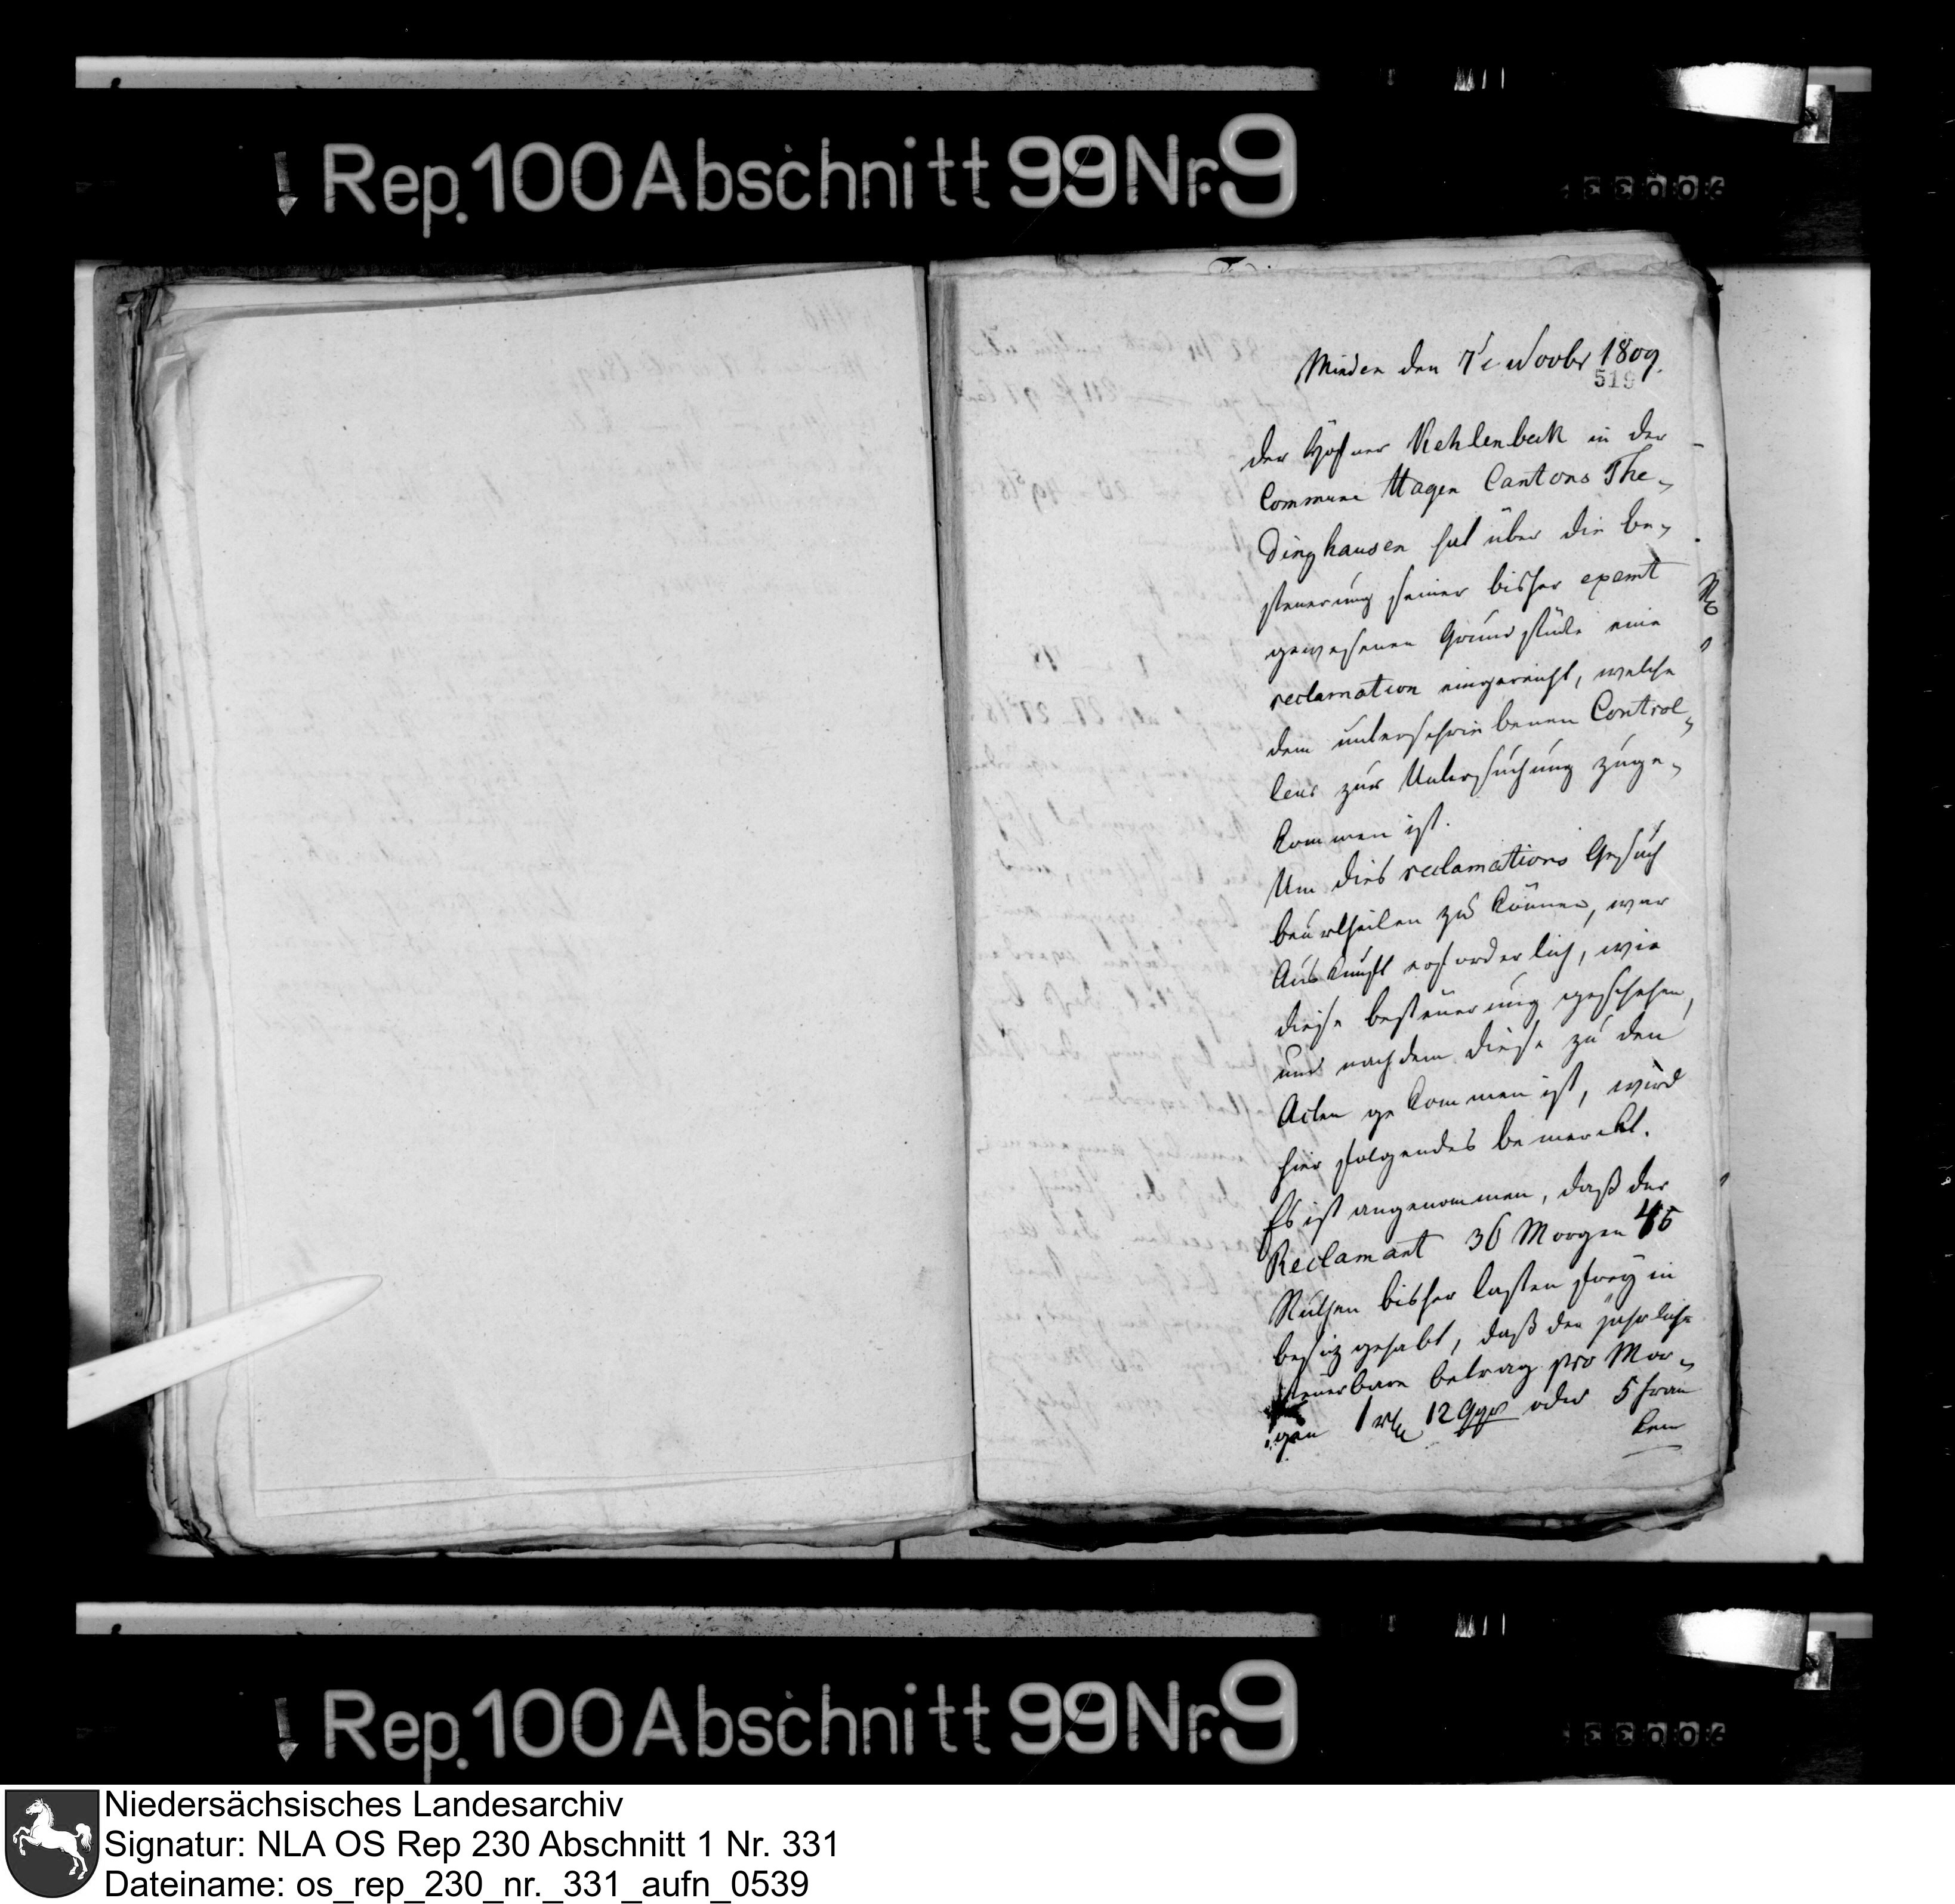 Rep. 100 Abschnitt 99 Nr. 9
Minden den 7t Novbr 1809.
519
der Höfner Kehlenbeck in der
Commune Hagen Cantons The-
dinghausen hat über die be-
steuerung seiner bisher exemt
gewesenen Grundstücke eine
reclamation eingereicht, welche
dem unterschriebenen Control-
leur zur Untersuchung zuge-
kommen ist.
Um dies reclamations Gesuch
beurtheilen zu können, war
Auskunft erforderlich, wie
diese besteuerung geschehen,
und nachdem diese zu den
Acten gekommen ist, wird
hier folgendes bemerckt.
Es ist angenommen, daß der
Reclamant 36 Morgen 45
Ruthen bisher lasten frey in
besitz gehabt, daß der jährliche
steuerbare betrag pro Mor-
gen 1 rth 12 Ggr oder 5 fran
ken
Rep. 100 Abschnitt 99 Nr. 9
Niedersächsisches Landesarchiv
Signatur: NLA OS Rep 230 Abschnitt 1 Nr. 331
Dateiname: os_rep_230_nr._331_aufn_0539